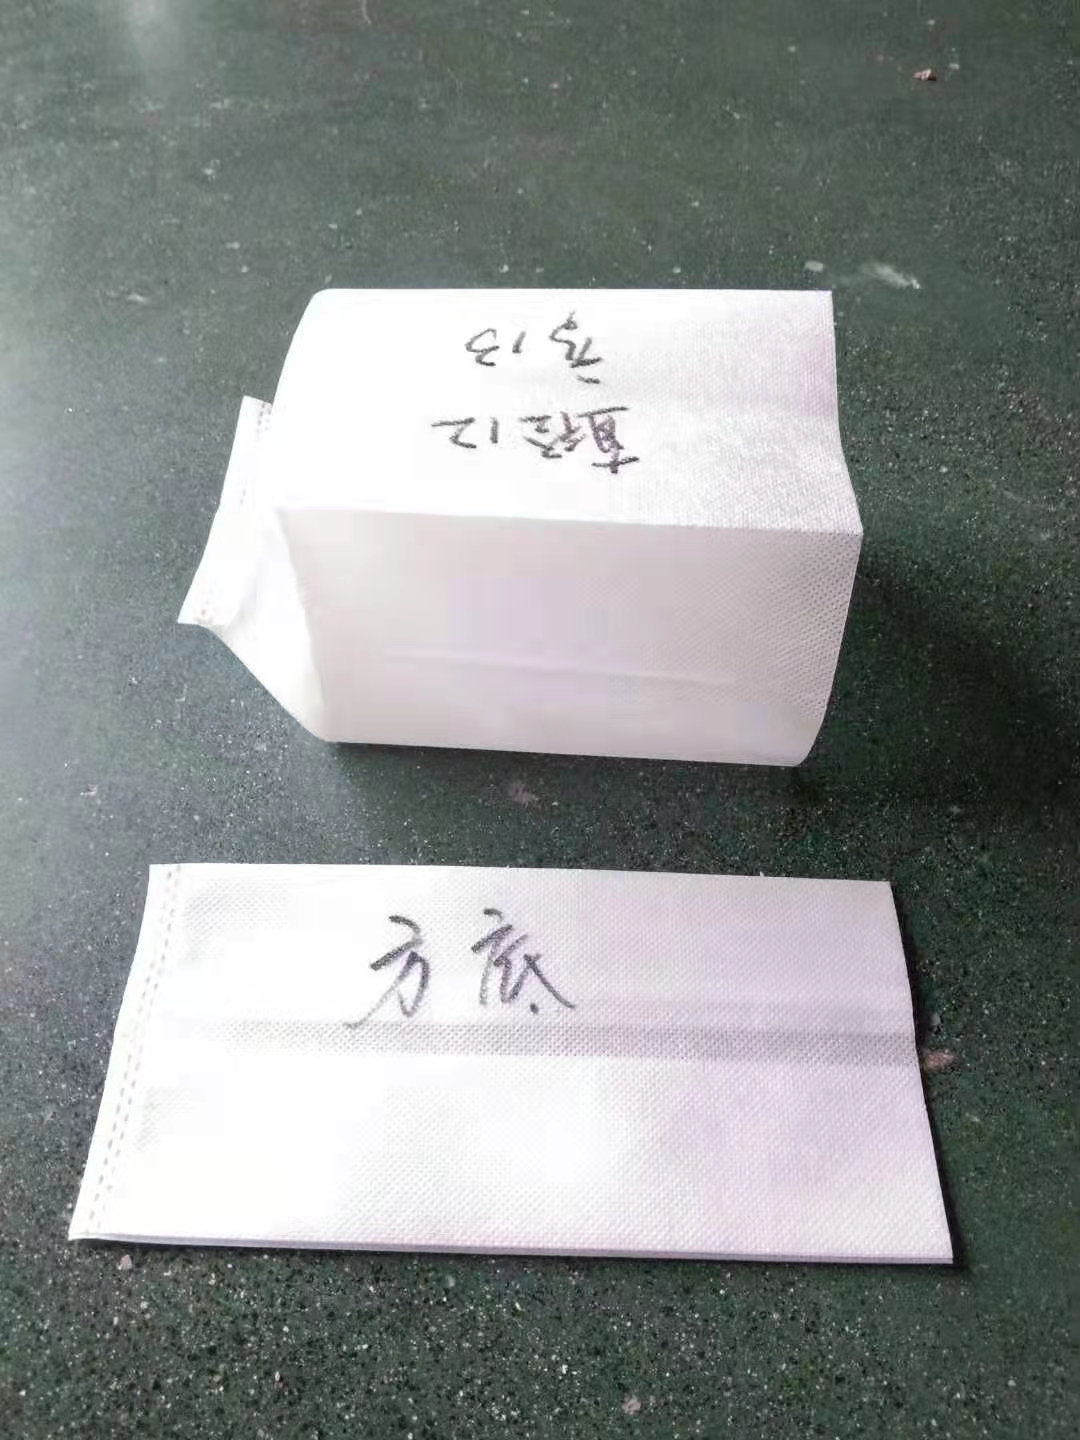 直径12
高13
方底